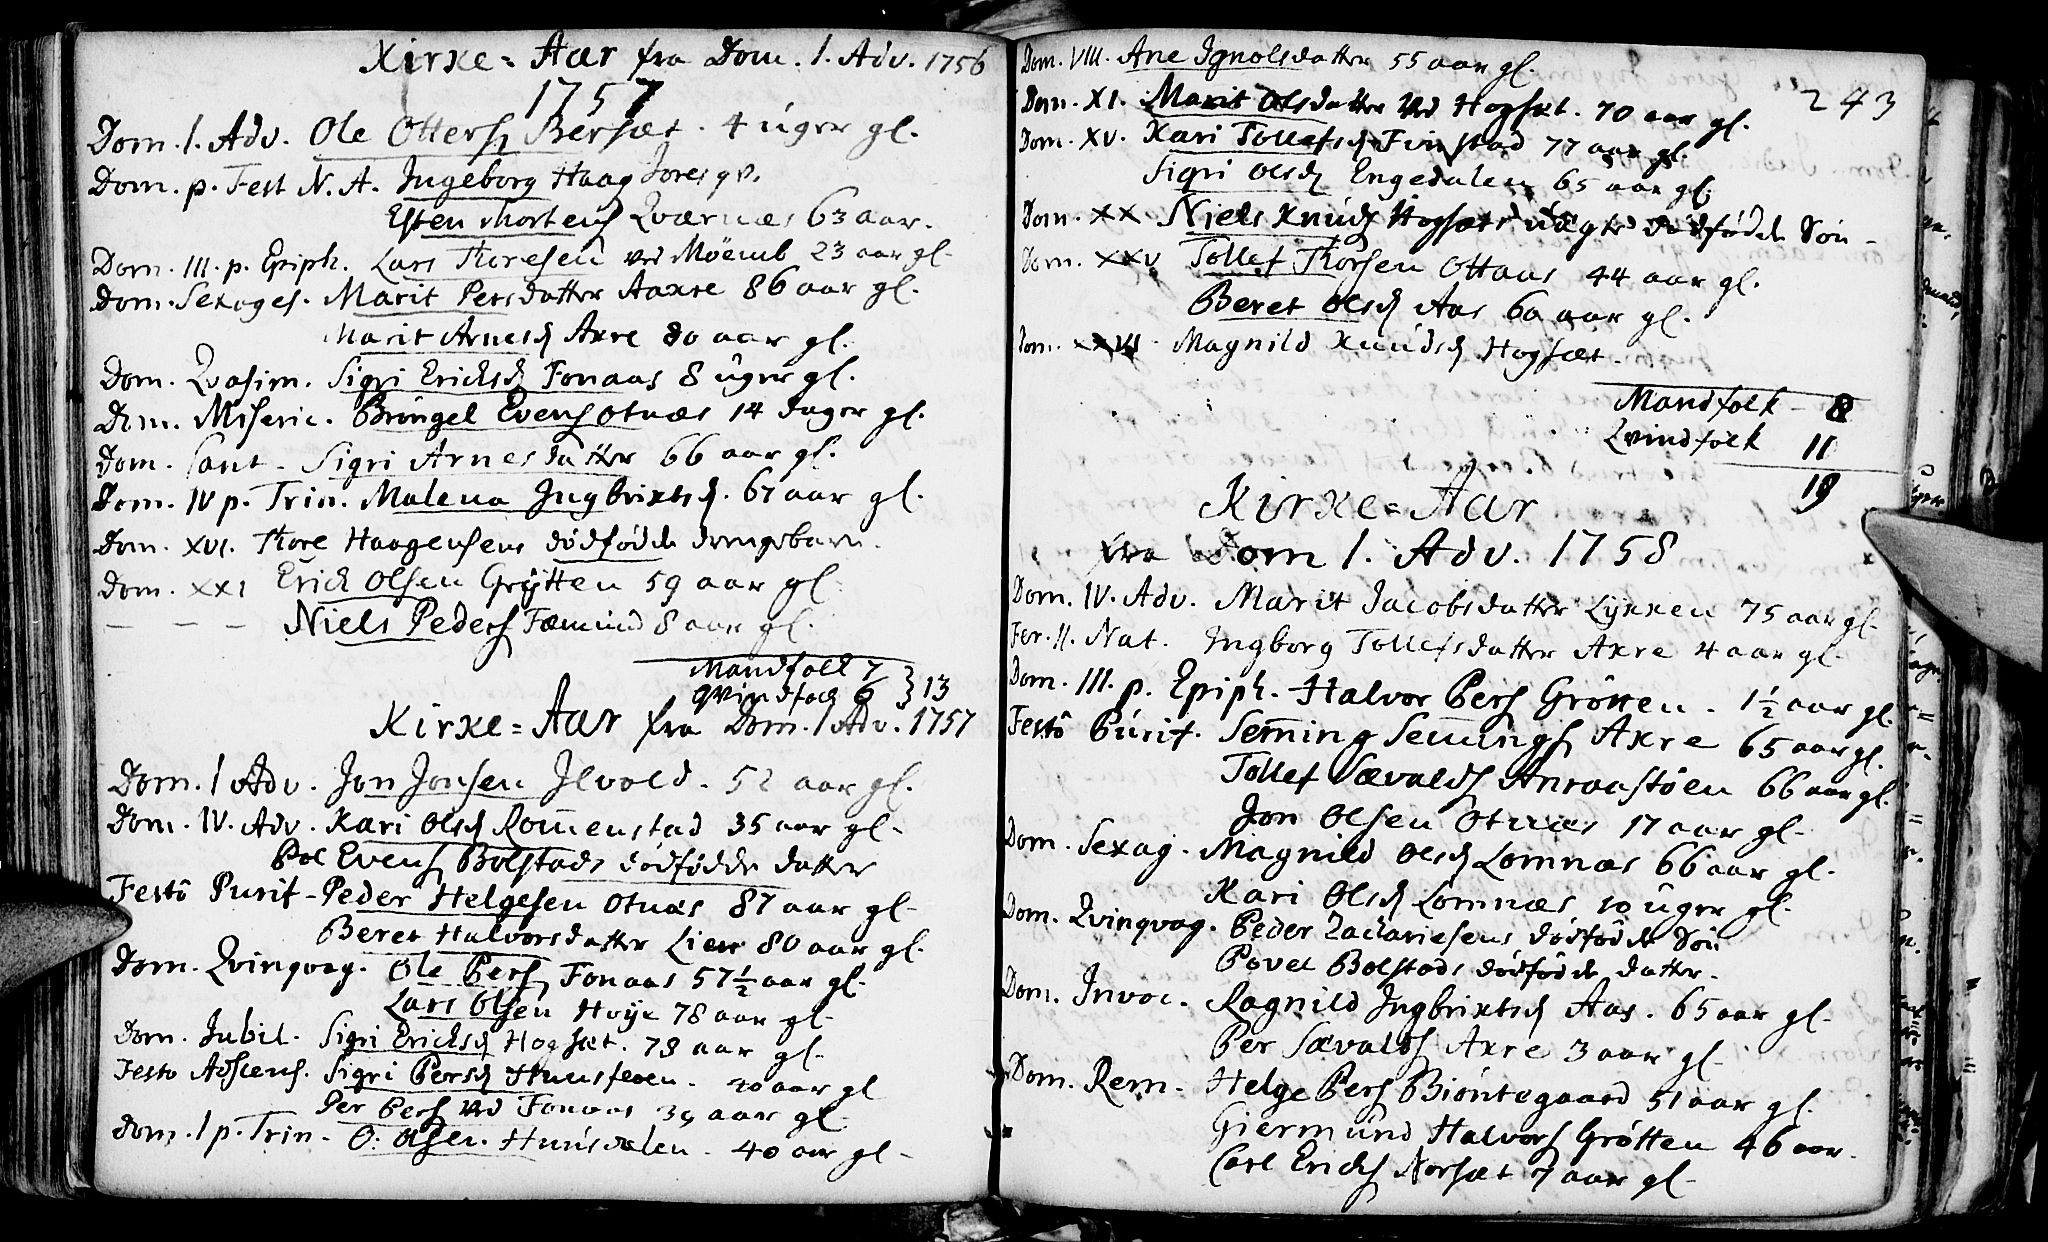 Kirke-Aar fra Dom. 1. Adv. 1756
1757
Dom. 1. Adv. Ole Ottersz Bersæt. 4 uger gl.
Dom. p. Fest N. A. Ingeborg Haag
Esten Mortens Qværnæs 63 aar.
Dom. III. p. Epiph. Lars Thoresen ved 23 aar gl.
Dom. Sexages. Marit Persdatter Aaxre 86 aar gl.
Marit Arnesd Axre 80 aar gl.
Dom. Qvasim. Sigri Ericksd Fonaas 8 uger gl.
Dom. Miseric. Bryngel Evens Otnæs 14 dager gl.
Dom. Cant. Sigri Arnesdatter 66 aar gl.
Dom. IV p. Trin. Malena Ingbrixtsd. 67 aar gl.
Dom. XVI. Thore Haagensens dødfødde drengebarn.
Dom. XXI Erich Olsen Grøtten 59 aar gl.
— — — Niels Peders Fæmund 8 aar gl.
Mandfolk 7
Qvindfolk 6 } 13
Kirke-Aar fra Dom. 1 Adv. 1757
Dom. 1 Adv. Jon Jonsen Ilvold. 52 aar gl.
Dom. IV. Adv. Kari Olsd Rom̅enstad 35 aar gl.
Pol Evens Bolstads dødfødde datter
Festo Purif. Peder Helgesen Otnæs 87 aar gl.
Beret Halvorsdatter Lien 80 aar gl.
Dom. Qvinqvag. Ole Pers Fonaas 57 ½ aar gl.
Lars Olsen Høye 78 aar gl.
Dom. Jubil. Sigri Ericksd Hogsæt. 78 aar gl.
Festo Adscens. Sigri Persd 20 aar gl
Per Pers ved Fonaas 39 aar gl.
Dom. 1 p. Trin. O. Olsen. Hunsdalen. 40 aar gl.
Dom. VIII. Ane Ignolsdatter 55 aar gl.
243
Dom. XI. Marit Olsdatter ved Hogsæt. 70 aar gl.
Dom. XV. Kari Tollefsd Finstad 77 aar gl.
Sigri Olsd Engedalen 65 aar gl.
Dom. XX Niels Knuds Hogsæt dødfødde Søn
Dom. XXV Tollef Thorsen Ottnes 44 aar gl.
Beret Olsd Aas 60 aar gl.
Dom. XXVI. Magnild Knudsd Hogsæt.
Mandfolk 8
Qvindfolk 11
19
Kirke-Aar
fra Dom 1. Adv. 1758
Dom. IV. Adv. Marit Jacobsdatter Lykken 75 aar gl.
Fer. II. Nat. Ingborg Tollefsdatter Axre 4 aar gl.
Dom. III. p. Epiph. Halvor Pers Grøtten. 1 ½ aar gl.
Festo Purif. Sem̅ing Sem̅ings Axre 65 aar gl.
Tollef Sævalds Anraastøen 66 aar gl.
Jon Olsen Otnæs 17 aar gl.
Dom. Sexag. Magnild Olsd Lomnæs 66 aar gl.
Kari Olsd Lomnæs 10 uger gl.
Dom. Qvinqvag. Peder Zachariesens dødfødde Søn
Povel Bolstads dødfødde datter.
Dom. Invoc. Ragnild Ingbrixtsd Aas. 65 aar gl.
Per Sævalds Axre 3 aar gl.
Dom. Rem. Helge Pers Biøntegaard 51 aar gl.
Giermund Halvors Grøtten 46 aar.
Carl Ericks Norsæt 7 aar gl.